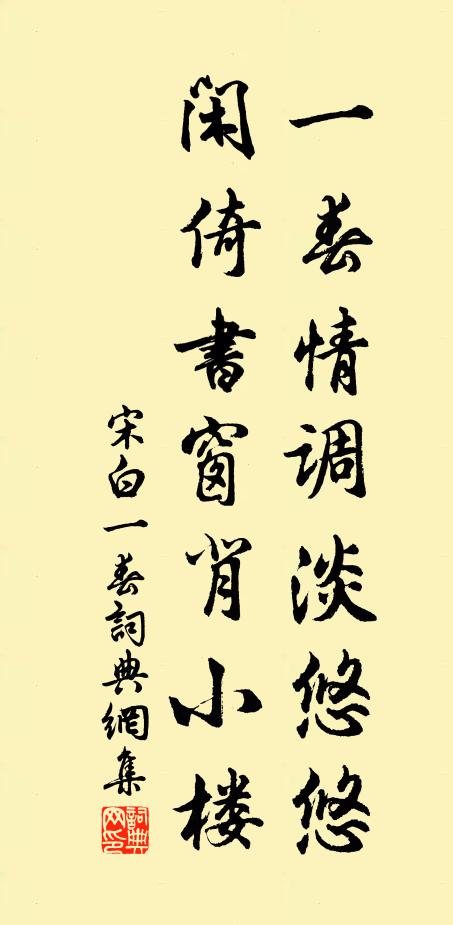 一春情调淡悠悠
闲倚書窗背小楼
宋白一春詞典網集
詞典网印